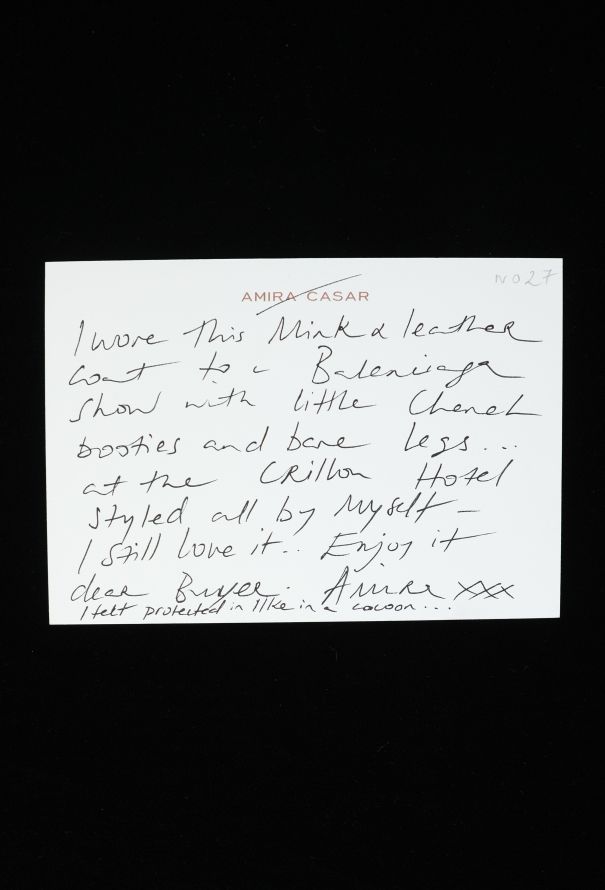 N027
AMIRA CASAR
I wore this Mink & leather
coat to a Balenciaga
show with little Chanel
booties and bare legs...
at the CRillon Hotel
styled all by Myself -
I still love it.. Enjoy it
dear Buyer. Amira xxx
I felt protected in it like in a cocoon...